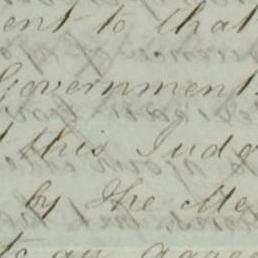 ent to that
Government
this Judg
by the Me
to an agree